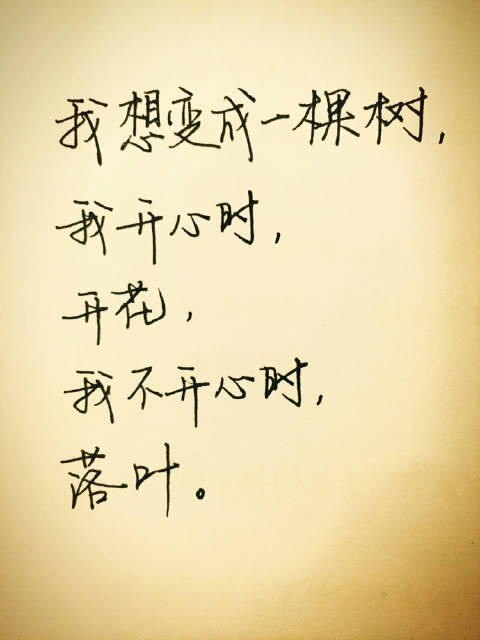 我想变成一棵树，
我开心时，
开花，
我不开心时，
落叶。